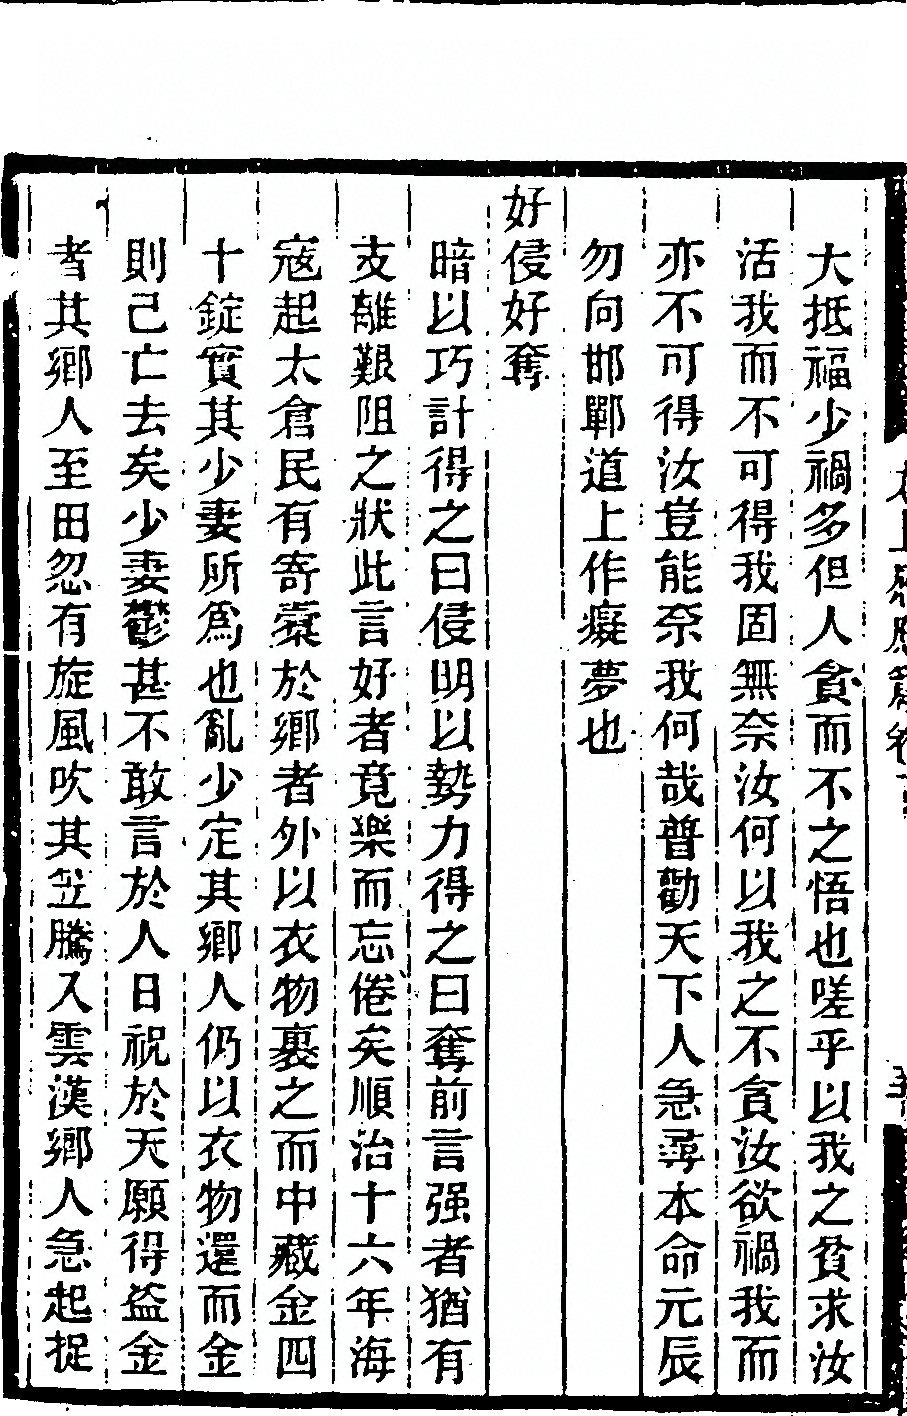 大抵福少禍多但人貪而不之悟也嗟乎以我之貧求汝
活我而不可得我固無奈汝何以我之不貪汝欲禍我而
亦不可得汝豈能奈我何哉普勸天下人急尋本命元辰
勿向邯鄲道上作癡夢也
好侵好奪
暗以巧計得之曰侵明以勢力得之曰奪前言强者猶有
支離艱阻之狀此言好者竟樂而忘倦矣順治十六年海
寇起太倉民有寄橐於鄉者外以衣物裹之而中藏金四
十錠實其少妻所爲也亂少定其鄉人仍以衣物還而金
則已亡去矣少妻鬱甚不敢言於人日祝於天願得盜金
者其鄉人至田忽有旋風吹其笠騰入雲漢鄉人急起捉